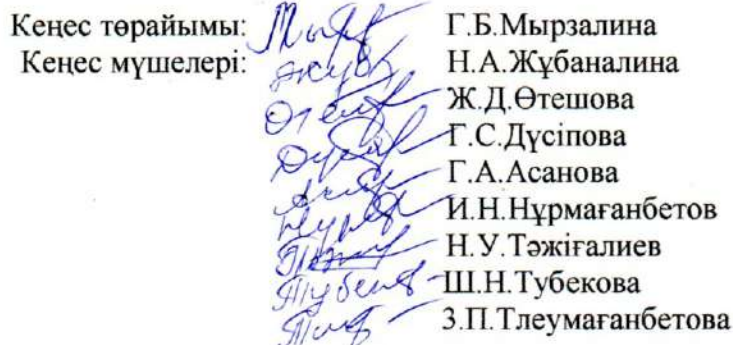 Кеңес төрайымы: Г.Б.Мырзалина
Кеңес мүшелері: Н.А.Жұбаналина
Ж.Д.Өтешова
Г.С.Дүсіпова
Г.А.Асанова
И.Н.Нұрмағанбетов
Н.У.Тәжіғалиев
Ш.Н.Тубекова
З.П.Тлеумағанбетова